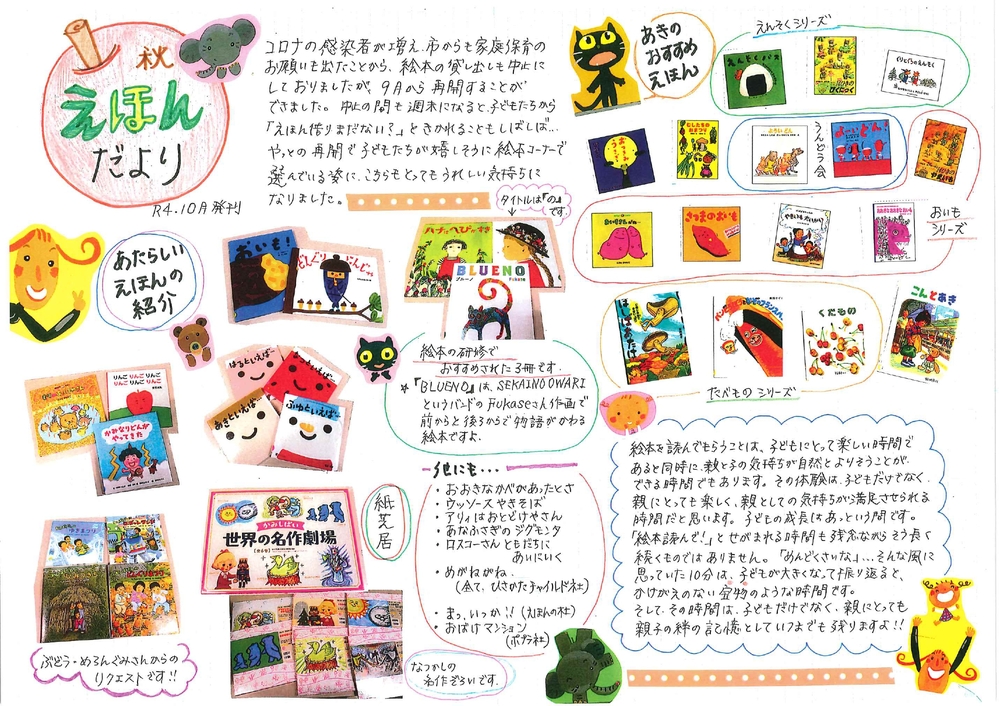 秋
えほん
だより
R4.10月発刊
コロナの感染者が増え、市からも家庭保育の
お願いも出たことから、絵本の貸し出しも中止に
しておりましたが、9月から再開することが
できました。中止の間も週末になると、子どもたちから
「えほん借りまだない?」ときかれることもしばしば…
やっとの再開で子どもたちが嬉しそうに絵本コーナーで
選んでいる姿に、こちらもとってもうれしい気持ちに
なりました。
あきの
おすすめ
えほん
えんそくシリーズ
えんそくバス
ぐりとぐらのえんそく
よういどん
うんどう会
よーいどん!
おいも
シリーズ
さつまのおいも
やきいもするぞ
はじめはたけ
くだもの
こんとあき
たべものシリーズ
あたらしい
えほんの
紹介
おいも!
どんぐりどんどん
タイトルは「の」
です。
ハナとへびのすず
BLUENO
ブルーノ
Fukase
絵本の研修で
おすすめされた3冊です。
☆『BLUENO』は、SEKAINOOWARI
というバンドのFukaseさん作画で
前からと後ろからで物語がかわる
絵本ですよ。
りんごりんごりんご
りんごりんごりんご
かみなりどんが
やってきた
はるといえば…
あきといえば…
ふゆといえば…
紙芝居
かみしばい
世界の名作劇場
ぶどう・めろんぐみさんからの
リクエストです!!
なつかしの
名作ぞろいです。
他にも…
・おおきなかべがあったとさ
・ウッソースやきそば
・アリィはおとどけやさん
・あなふさぎのジグモンタ
・ロスコーさんともだちに
あいにいく
・めがねがね
(全て、ひさかたチャイルド社)
・まっ、いっか!!(えほんの杜)
・おばけマンション
(ポプラ社)
絵本を読んでもらうことは、子どもにとって楽しい時間で
あると同時に、親と子の気持ちが自然とよりそうことが
できる時間でもあります。その体験は、子どもだけでなく、
親にとっても楽しく、親としての気持ちが満足させられる
時間だと思います。子どもの成長はあっという間です。
「絵本読んで!」とせがまれる時間も残念ながらそう長く
続くものではありません。「めんどくさいな」…そんな風に
思っていた10分は、子どもが大きくなって振り返ると、
かけがえのない宝物のような時間です。
そして、その時間は、子どもだけでなく、親にとっても
親子の絆の記憶としていつまでも残りますよ!!